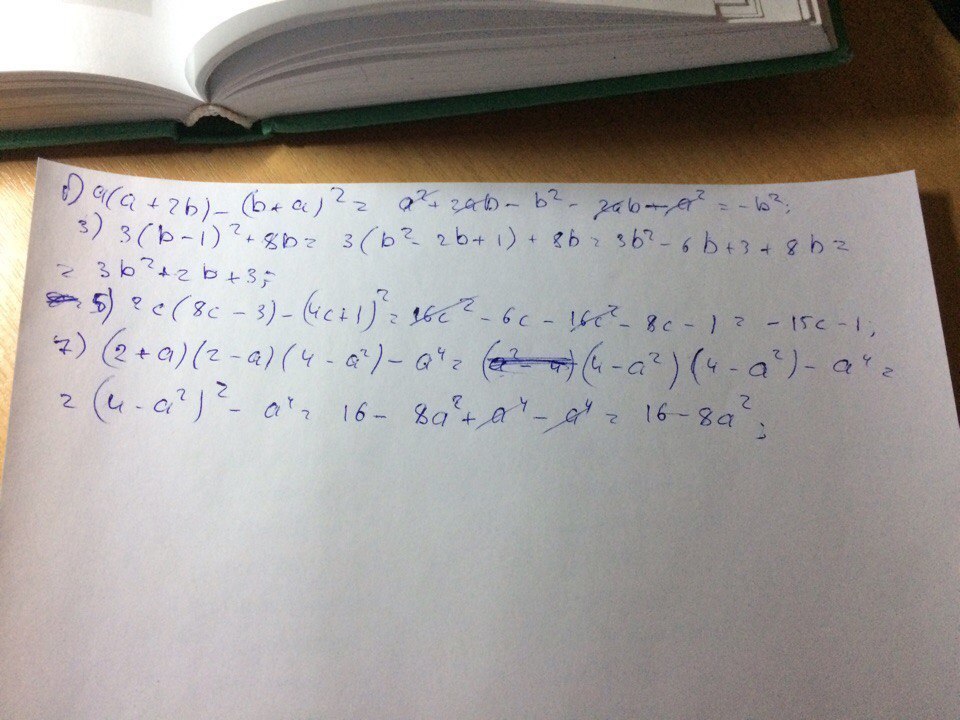 1) a(a+2b)-(b+a)²= a²+2ab-b²-2ab-a²=-b²;
3) 3(b-1)²+8b= 3(b²-2b+1)+8b=3b²-6b+3+8b=
= 3b²+2b+3;
5) 2c(8c-3)-(4c+1)²=16c²-6c-16c²-8c-1= -15c-1;
7) (2+a)(2-a)(4-a²)-a⁴= (4-a²)(4-a²)-a⁴=
= (4-a²)²-a⁴= 16-8a²+a⁴-a⁴= 16-8a²;